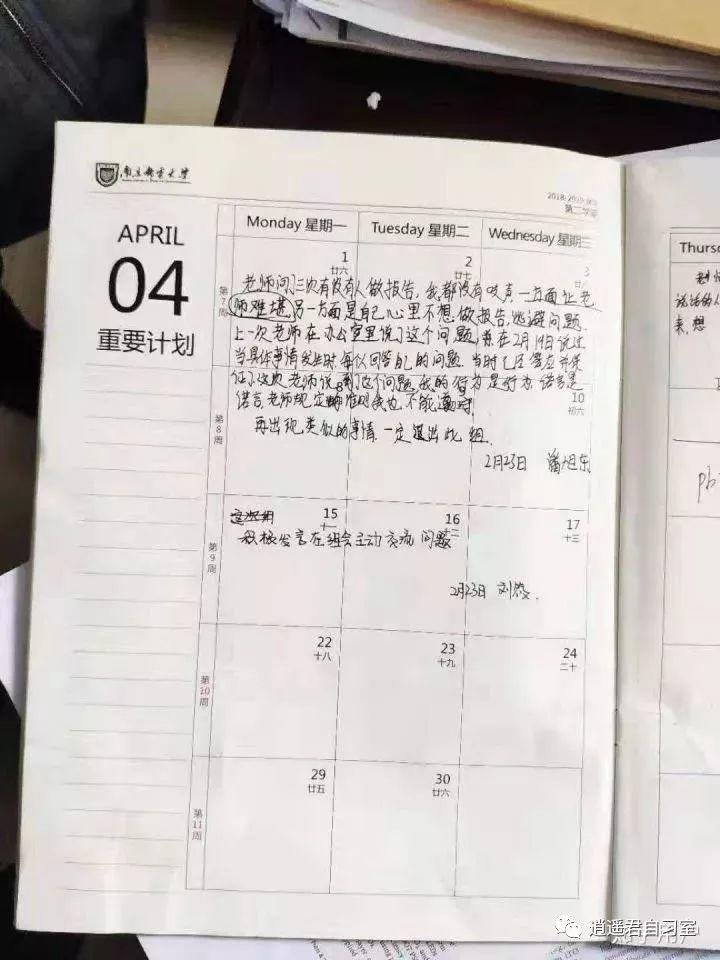 南京邮电大学
2018-2019学年
第二学期
APRIL
04
重要计划
Monday 星期一
Tuesday 星期二
Wednesday 星期三
Thurs
第7周
1
廿六
2
廿七
3
老师问了三次有没有人做报告，我都没有吱声，一方面让老
师难堪，另一方面是自己心里不想做报告，逃避问题.
上一次老师在办公室里说了这个问题，并在2月19日说过
当具体事情发生时每人回答自己的问题.当时已经答应并保
证了，这次老师说到了这个问题，我的行为是行为，诺言是
诺言，老师规定的准则我也不能遵守，
第8周
10
初六
再出现类似的事情，一定退出此组.
2月23日 潘旭东
第9周
15
十一
16
十二
17
十三
积极发言在组会主动交流问题
2月23日 刘
第10周
22
十八
23
十九
24
二十
第11周
29
廿五
30
廿六
说话的人
来，想
逍遥君自习室